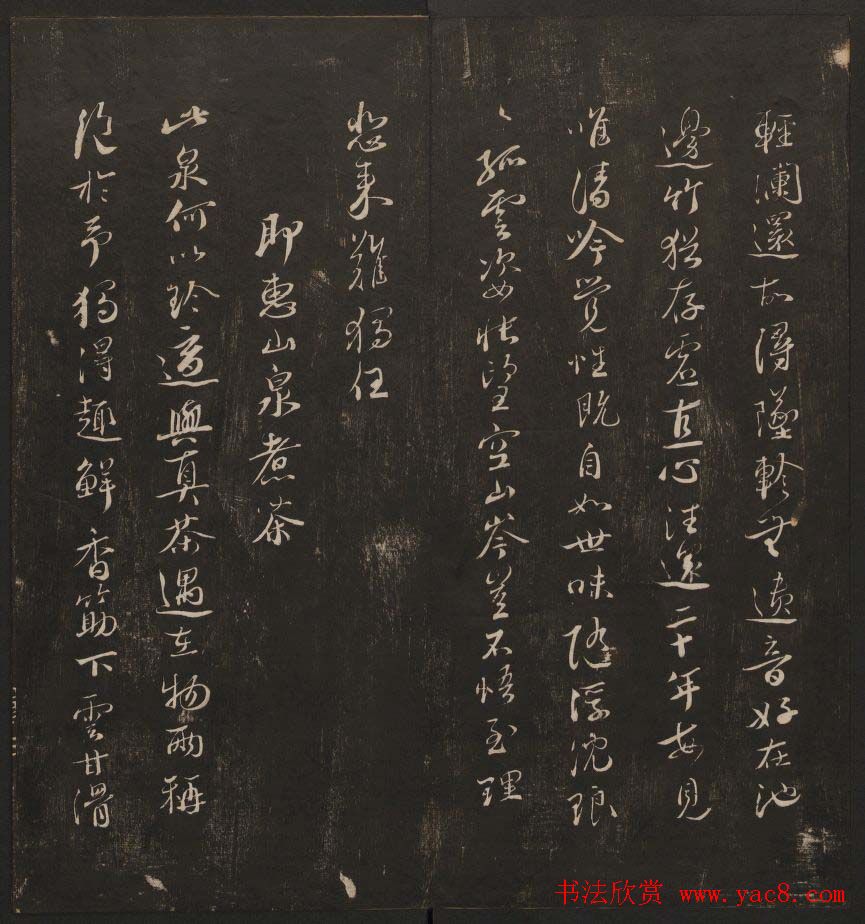 輕瀾還故潯墜軫無遺音好在池
邊竹猶存虛直心往還二十年每見
唯清吟覺性既自如世味隨浮沈琅
〻孤雲姿悵望空山岑豈不悟至理
悲來難獨任
即惠山泉煮茶
此泉何以珍適與真茶遇在物兩稱
絕於予獨得趣鮮香筯下雲甘滑
书法欣赏 www.yac8.com